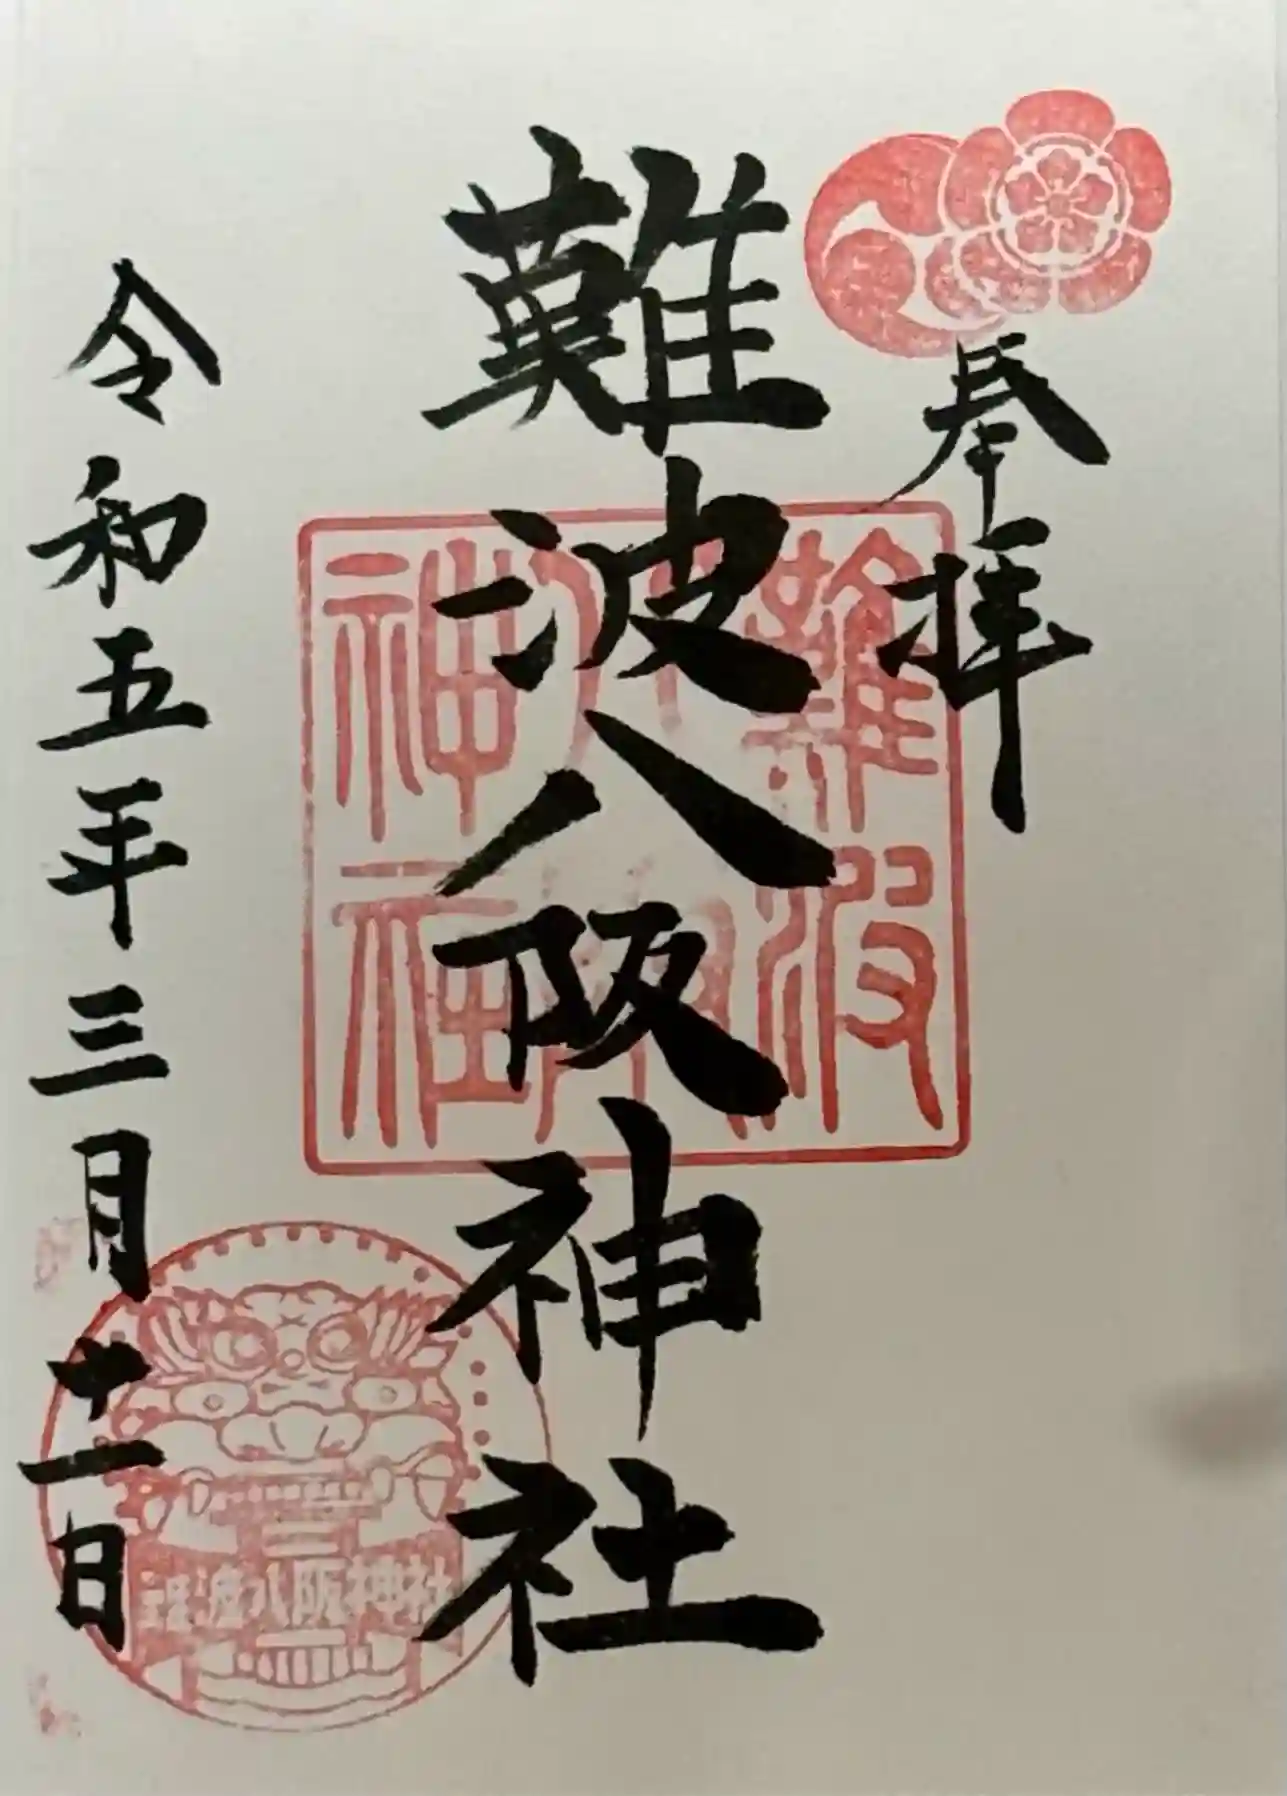 奉拝
難波八阪神社
令和五年三月十一日
難波八阪神社
難波八阪神社